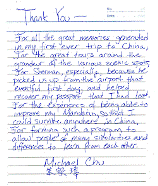 Thank You —
For all the great memories generated
in my first ever trip to China,
For the great tours around the
grandeur of the various scenic spots,
For Sherman, especially, because he
picked us up from the airport that
eventful first day, and helped
recover my passport that I had lost
For the experience of being able to
improve my Mandarin, so that I
could survive anywhere in China,
For forming such a program to
allow people of many similarities and
differences to learn from each other
Michael Chu